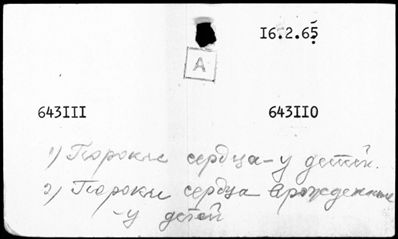 16.2.65
A
643III 643110
1) Пороки сердца - у детей.
2) Пороки сердца врожденные
- у детей